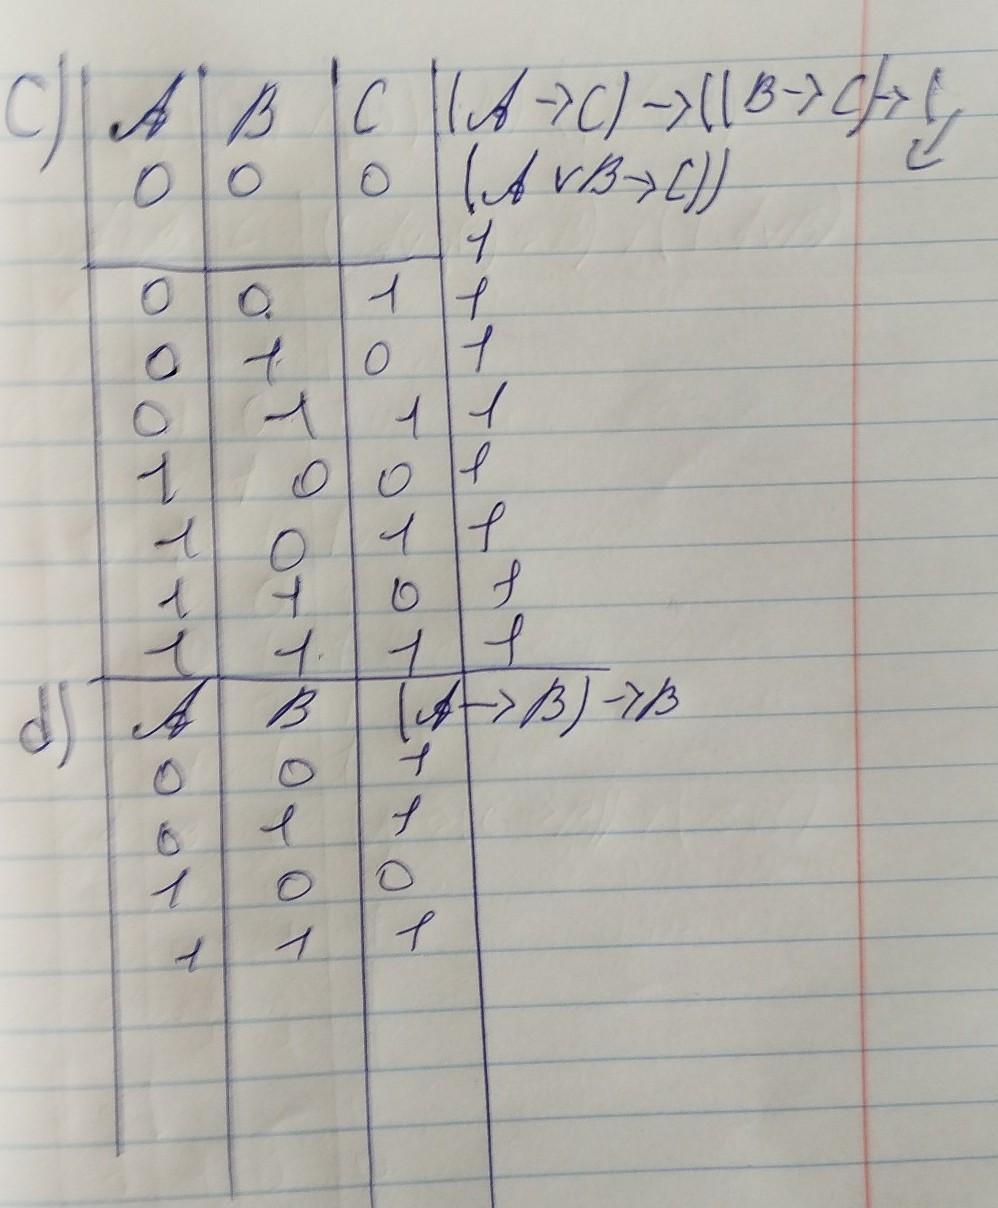 C) A B C (A → C) → ((B → C) → (
0 0 0 (A ∨ B → C))
1
0 0 1 1
0 1 0 1
0 1 1 1
1 0 0 1
1 0 1 1
1 1 0 1
1 1 1 1
d) A B (A → B) → B
0 0 1
0 1 1
1 0 0
1 1 1